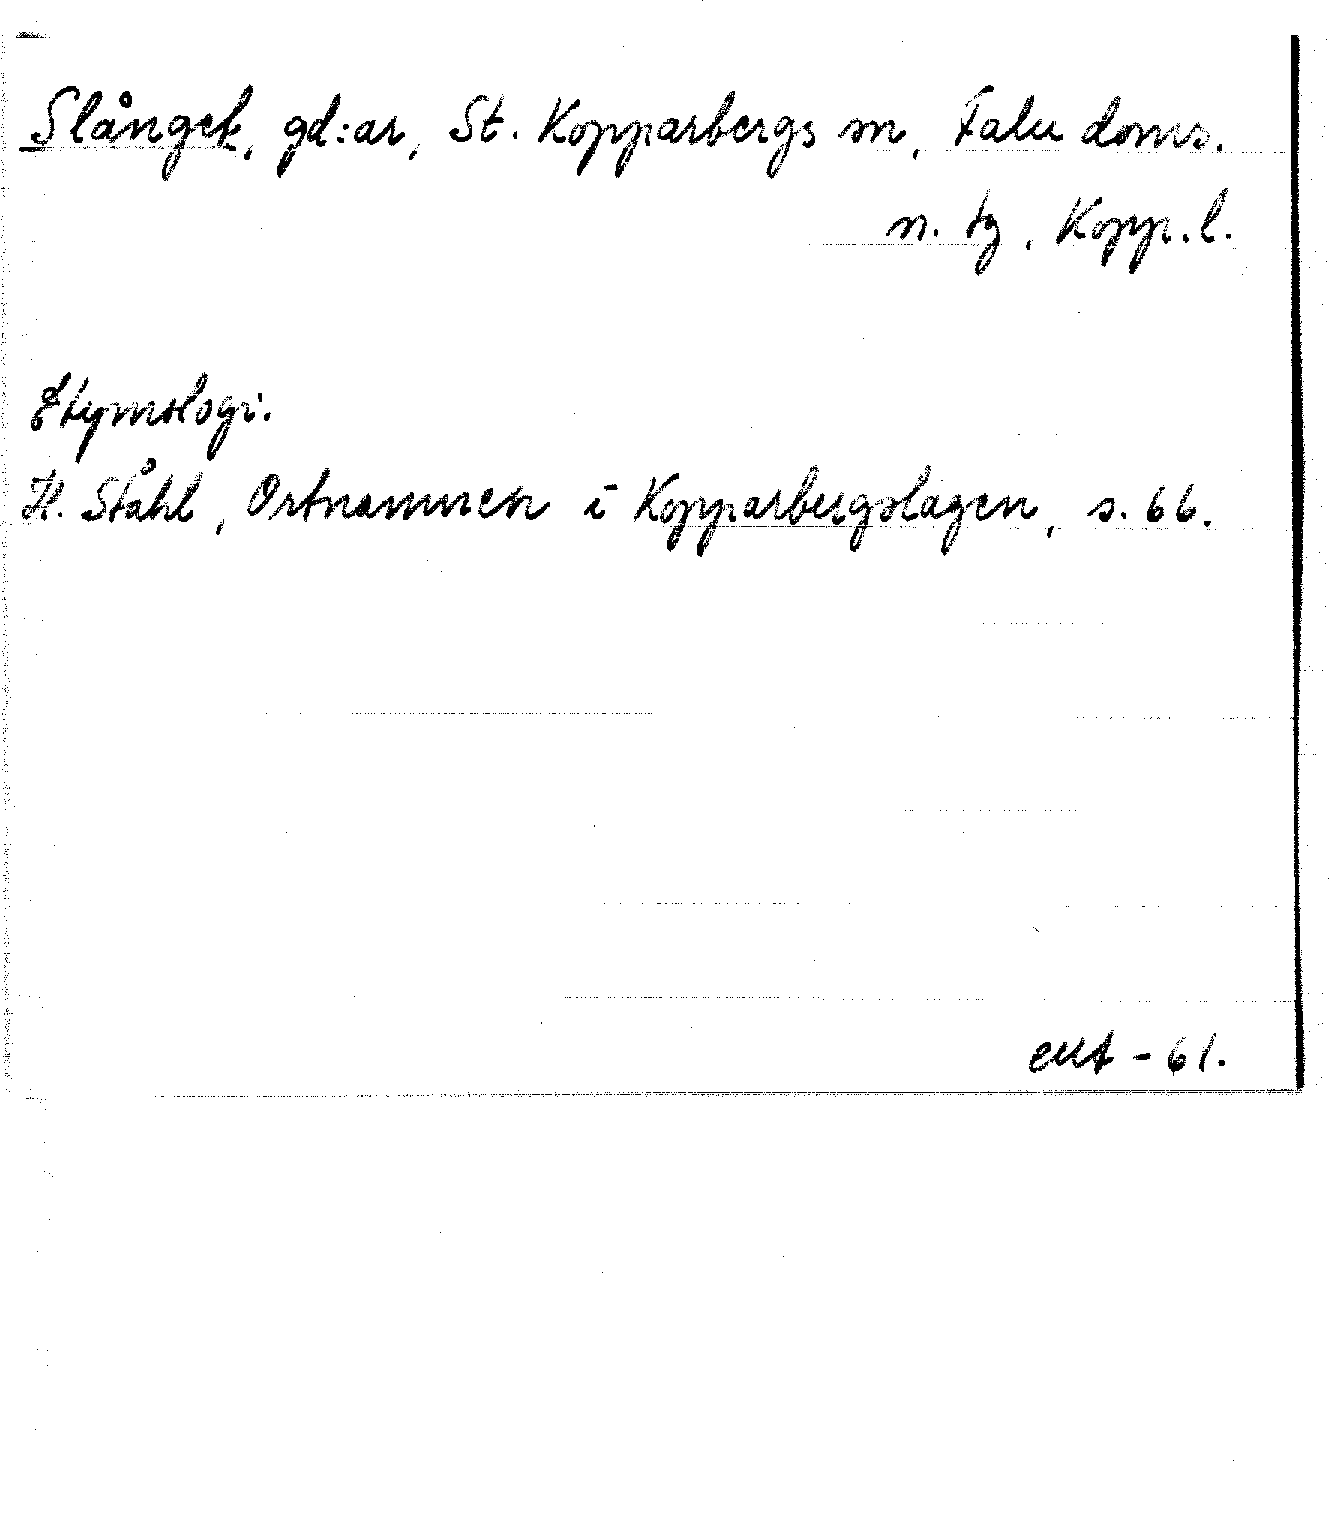 Slånget, gd:ar, St. Kopparbergs sn, Falu doms.
n. tg, Kopp. l.
Etymologi.
H. Ståhl, Ortnamnen i Kopparbergslagen, s. 66.
-61.